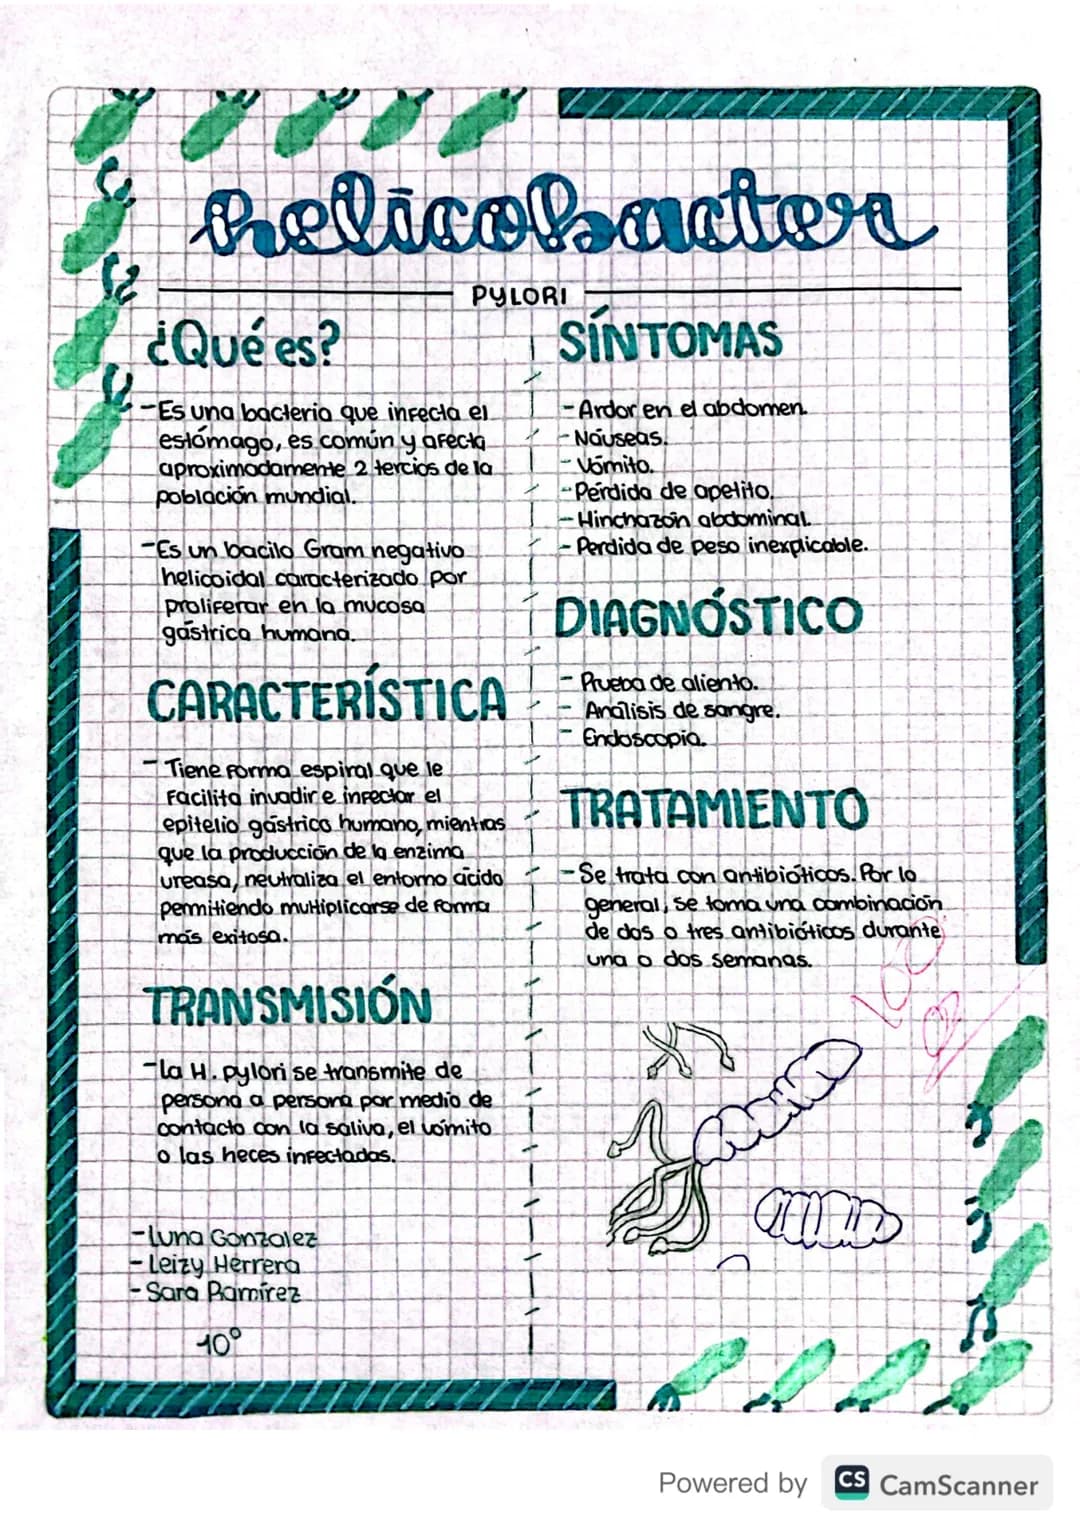 helicobacter
PYLORI
¿Qué es?
-Es una bacteria que infecta el
estómago, es común y afecta
aproximadamente 2 tercios de la
población mundial.
-Es un bacilo Gram negativo
helicoidal caracterizado por
proliferar en la mucosa
gástrica humana.
CARACTERÍSTICA
- Tiene forma espiral que le
Facilita invadir e infectar el
epitelio gástrico humano, mientras
que la producción de la enzima
ureasa, neutraliza el entorno ácido
permitiendo multiplicarse de forma
más exitosa.
TRANSMISIÓN
-la H. pylori se transmite de
persona a persona por medio de
contacto con la saliva, el vómito
o las heces infectadas.
-Luna Gonzalez
- Leizy Herrera
- Sara Ramírez
10°
SÍNTOMAS
- Ardor en el abdomen.
- Náuseas.
- Vómito.
- Pérdida de apetito.
- Hinchazón abdominal.
- Perdida de peso inexplicable.
DIAGNÓSTICO
- Prueba de aliento.
- Análisis de sangre.
- Endoscopia.
TRATAMIENTO
- Se trata con antibióticos. Por lo
general, se toma una combinación
de dos o tres antibióticos durante
una o dos semanas.
100
Powered by CS CamScanner